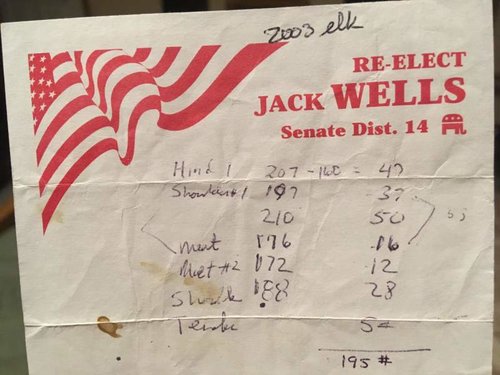 2003 elk
RE-ELECT
JACK WELLS
Senate Dist. 14
Hind 1 207 - 160 = 47
Shoulder #1 197 37
210 50
Meat 176 16
Meat #2 172 12
188 28
195 #